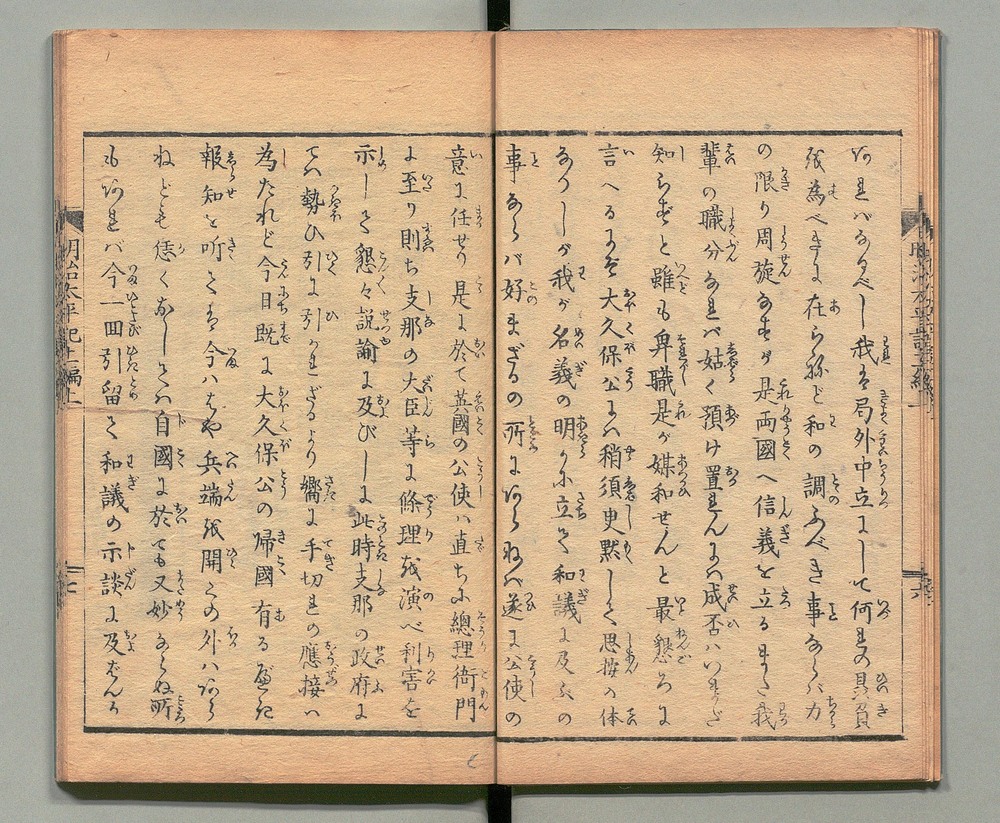 何れの贔負
を為べきに在らねど和の調ふべき事ならバ力
の限り周旋なすが是両國へ信義を立るまた我
輩の職分なれバ姑く預け置れんにハ成否ハいまだ
知らずと雖も卑職是が媒和せんと最懇ろに
言へるにぞ大久保公にハ稍須臾黙して思按の体
なりしが我が名義の明かに立て和議に及ぶの
事ならバ好まざるの所にあらねバ遂に公使の
意に任せり是に於て英國の公使ハ直ちに總理衙門
に至り則ち支那の大臣等に條理を演べ利害を
示して懇々説諭に及びしに此時支那の政府に
てハ勢ひ引に引れざるより嚮に手切れの應接ハ
為たれど今日既に大久保公の帰國有る
報知を听てハ今ハはや兵端を開くの外ハあら
ねども恁くなしてハ自國に於ても又妙ならぬ所
もあれバ今一回引留て和議の示談に及ばんか
明治太平記十一編上
七
六